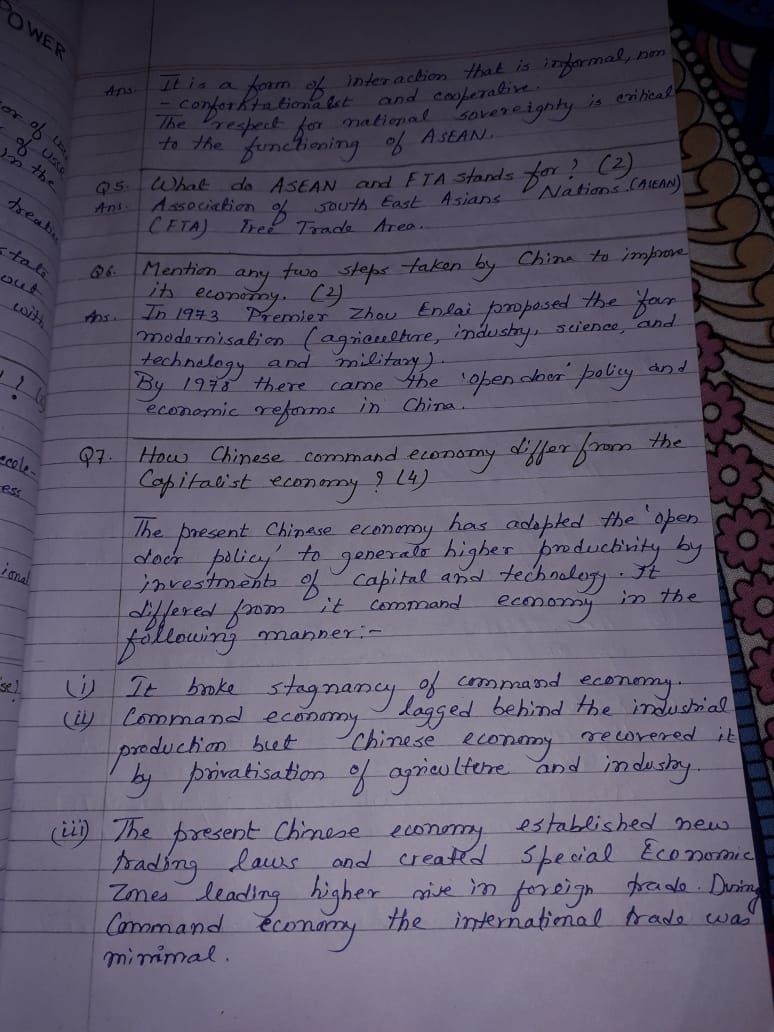 POWER
Ans. It is a form of interaction that is informal, non
- conforntationalist and cooperative.
The respect for national sovereignty is critical
to the functioning of ASEAN.
Q5. What do ASEAN and FTA stands for? (2)
Ans. Association of South East Asians Nations.(ASEAN)
(FTA) Free Trade Area.
Q6. Mention any two steps taken by China to improve
its economy. (2)
Ans. In 1973 Premier Zhou Enlai proposed the four
modernisation (agriculture, industry, science, and
technology and military).
By 1978 there came the 'open door' policy and
economic reforms in China.
Q7. How Chinese command economy differ from the
Capitalist economy? (4)
The present Chinese economy has adopted the 'open
door policy' to generate higher productivity by
investments of Capital and technology. It
differed from it command economy in the
following manner:-
(i) It broke stagnancy of command economy.
(ii) Command economy lagged behind the industrial
production but Chinese economy recovered it
by privatisation of agriculture and industry.
(iii) The present Chinese economy established new
trading laws and created Special Economic
Zones leading higher rise in foreign trade. During
Command economy the international trade was
minimal.